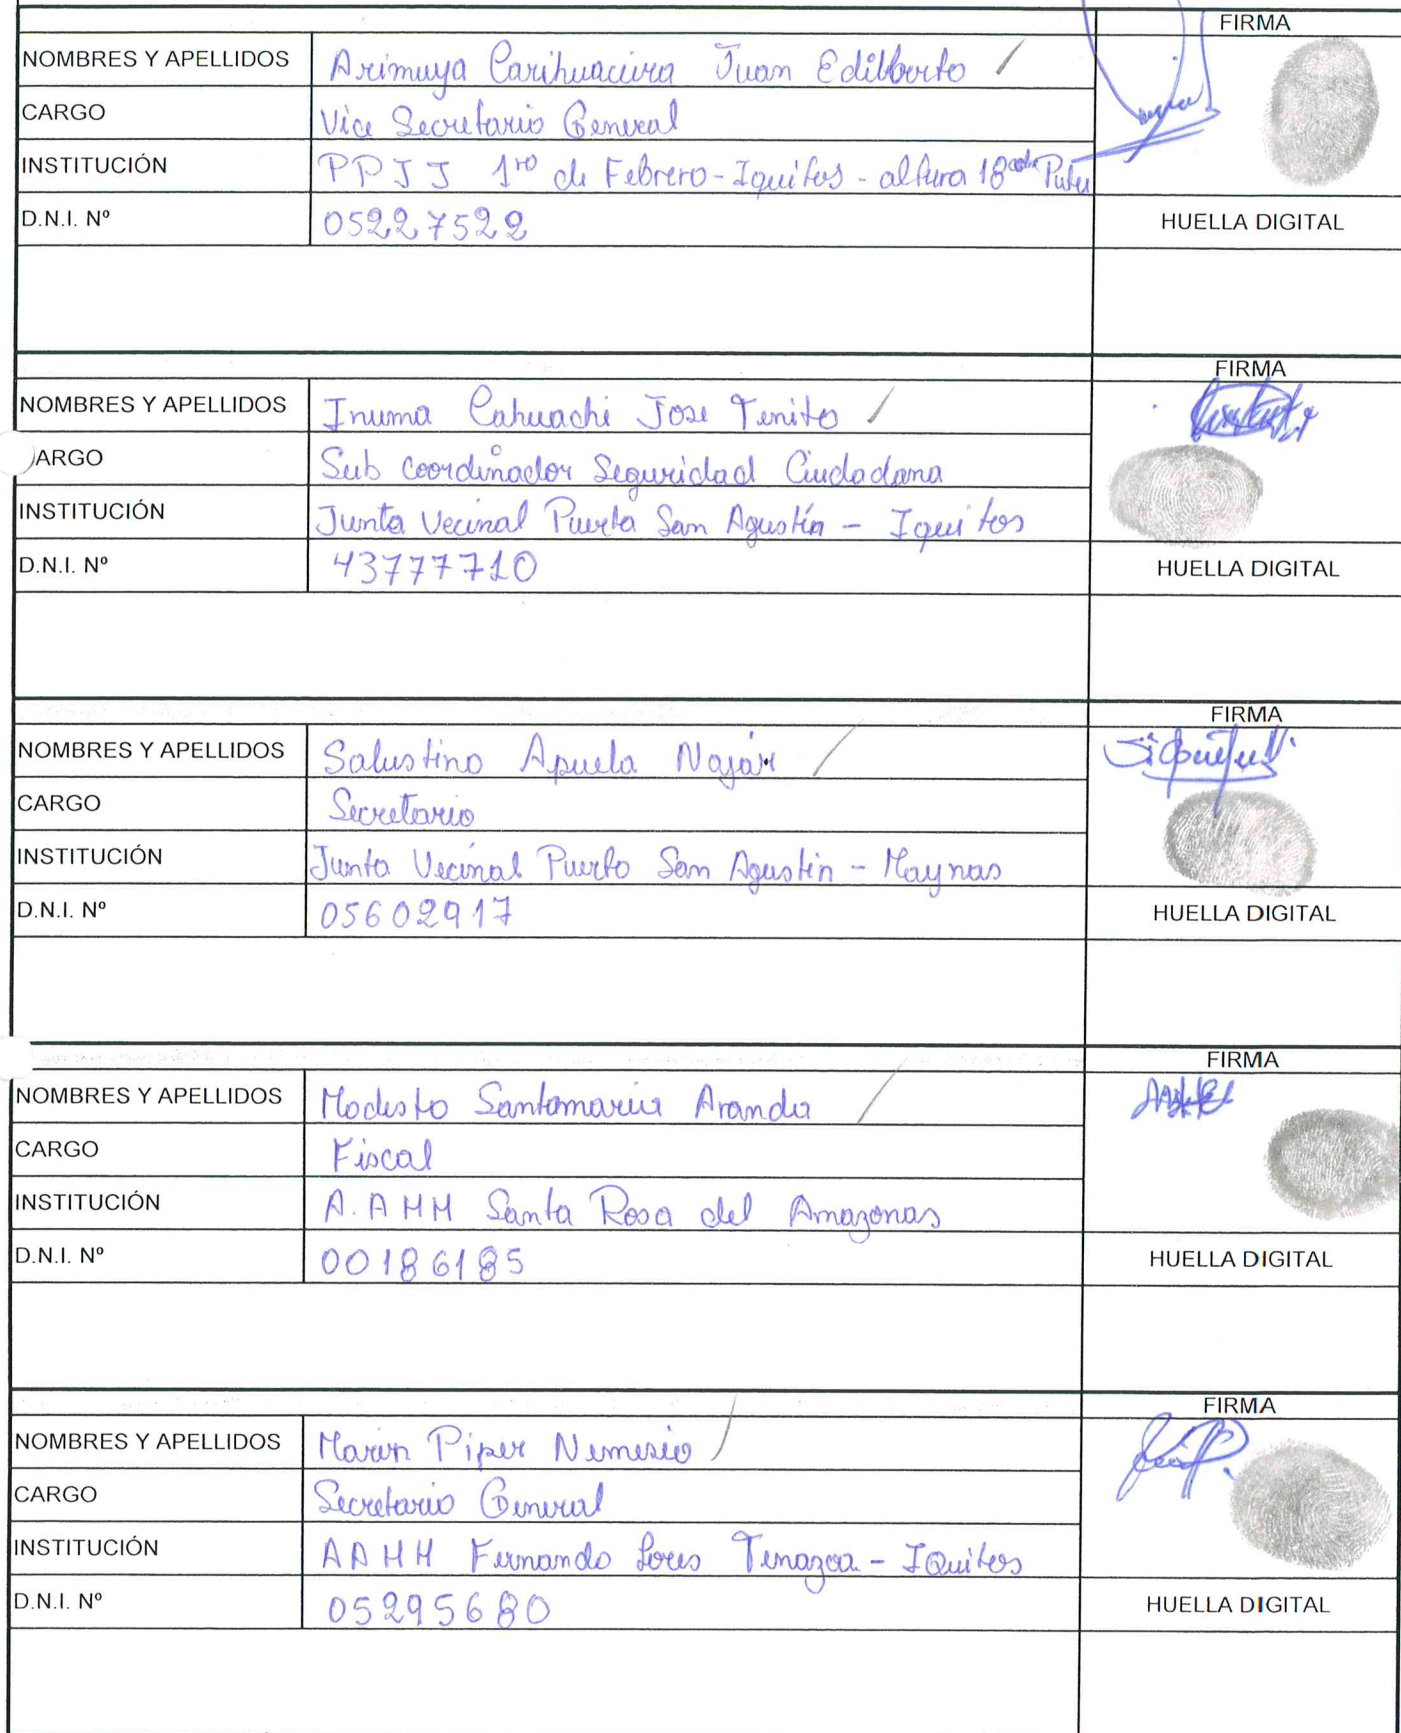 FIRMA
NOMBRES Y APELLIDOS Arimuya Carihuacura Juan Edilberto
CARGO Vice Secretario General
INSTITUCIÓN PPJJ 1ro de Febrero - Iquitos - altura 18
D.N.I. Nº 05227522 HUELLA DIGITAL
FIRMA
NOMBRES Y APELLIDOS Inuma Cahuachi Jose Tenito
ARGO Sub Coordinador Seguridad Ciudadana
INSTITUCIÓN Junta Vecinal Puerto San Agustín - Iquitos
D.N.I. Nº 43777710 HUELLA DIGITAL
FIRMA
NOMBRES Y APELLIDOS Salustino Apuela Najár
CARGO Secretario
INSTITUCIÓN Junta Vecinal Puerto San Agustin - Maynas
D.N.I. Nº 05602917 HUELLA DIGITAL
FIRMA
NOMBRES Y APELLIDOS Modesto Santamaria Aranda
CARGO Fiscal
INSTITUCIÓN A.AHH Santa Rosa del Amazonas
D.N.I. Nº 00186185 HUELLA DIGITAL
FIRMA
NOMBRES Y APELLIDOS Marin Piper Nemesio
CARGO Secretario General
INSTITUCIÓN AAHH Fernando Lores Tenazoa - IQuitos
D.N.I. Nº 05295680 HUELLA DIGITAL